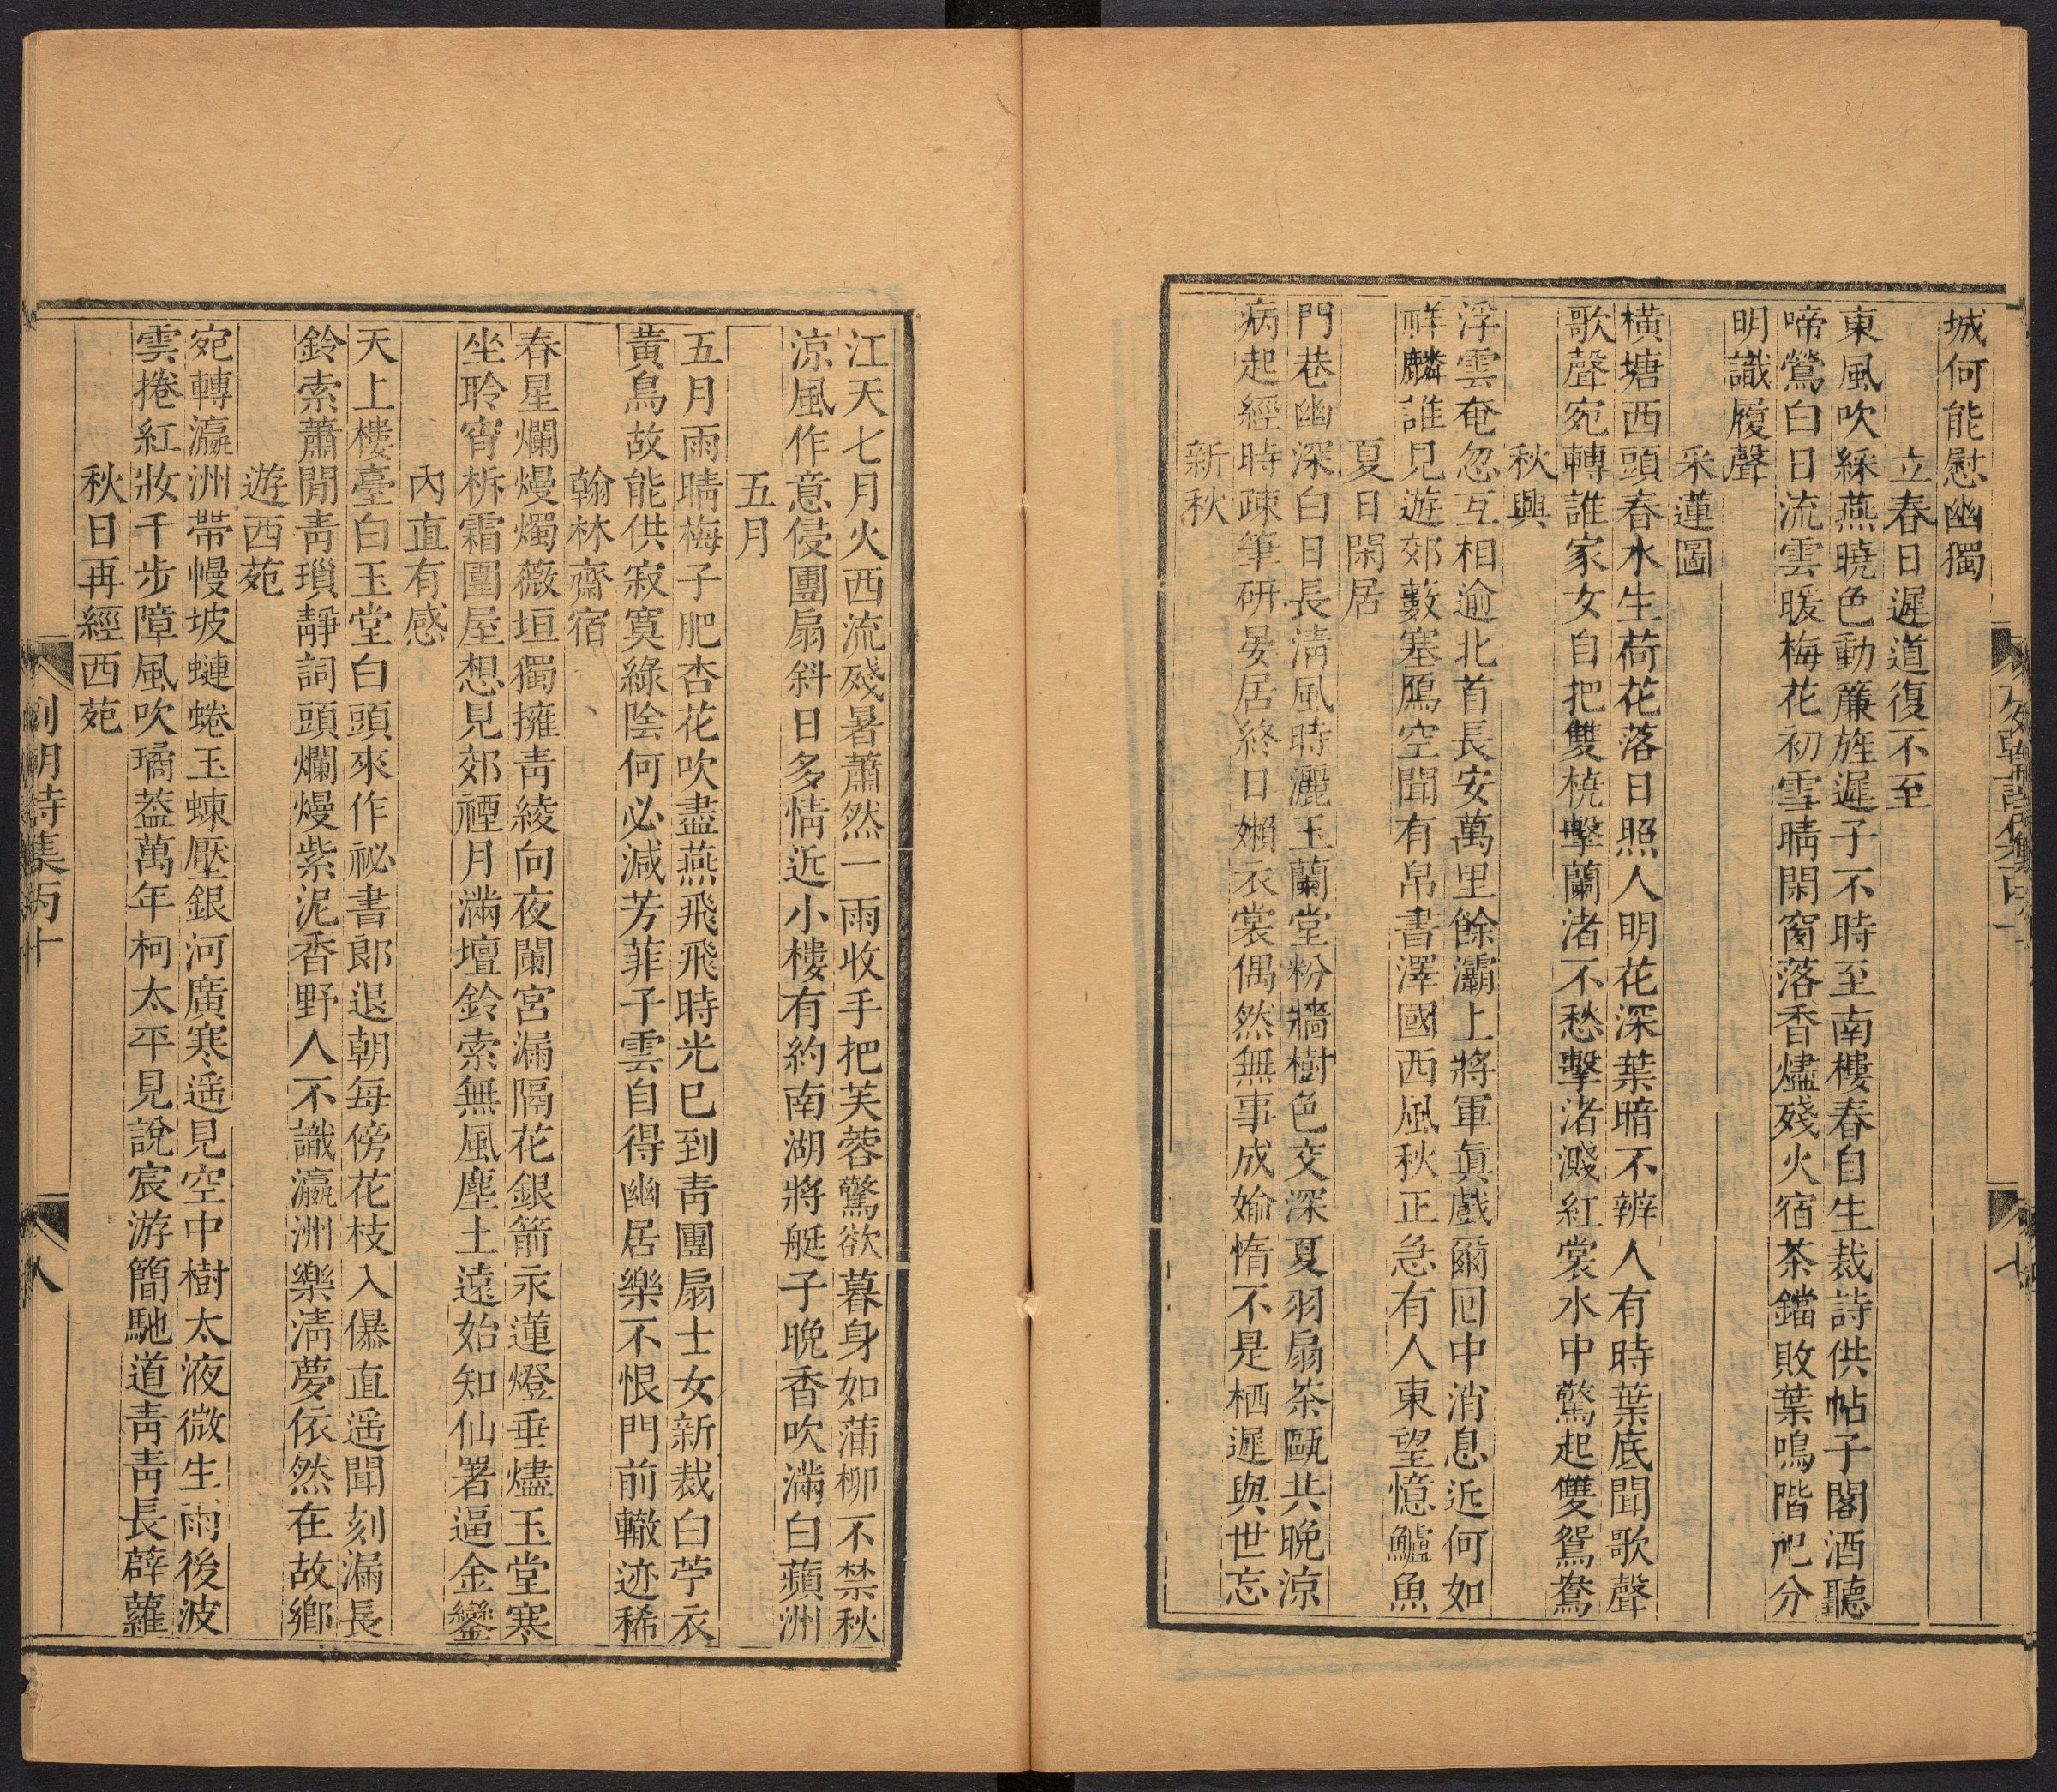 城何能慰幽獨
立春日遲道復不至
東風吹綵燕曉色動簾旌遲子不時至南樓春自生裁詩供帖子閣酒聽
啼鶯白日流雲暖梅花初雪晴閑窗落香燼殘火宿茶鐺敗葉鳴階戺分
明識履聲
采蓮圖
橫塘西頭春水生荷花落日照人明花深葉暗不辨人有時葉底聞歌聲
歌聲宛轉誰家女自把雙橈擊蘭渚不愁擊渚濺紅裳水中驚起雙鴛鴦
秋興
浮雲奄忽互相逾北首長安萬里餘灞上將軍眞戲爾囘中消息近何如
祥麟誰見遊郊藪塞鴈空聞有帛書澤國西風秋正急有人東望憶鱸魚
夏日閑居
門巷幽深白日長淸風時灑玉蘭堂粉牆樹色交深夏羽扇茶甌共晚凉
病起經時疎筆硏晏居終日嬾衣裳偶然無事成媮惰不是栖遲與世忘
新秋
江天七月火西流殘暑蕭然一雨收手把芙蓉驚欲暮身如蒲柳不禁秋
凉風作意侵團扇斜日多情近小樓有約南湖將艇子晚香吹滿白蘋洲
五月
五月雨晴梅子肥杏花吹盡燕飛飛時光已到靑團扇士女新裁白苧衣
黃鳥故能供寂寞綠陰何必減芳菲子雲自得幽居樂不恨門前轍迹稀
翰林齋宿
春星爛熳燭薇垣獨擁靑綾向夜闌宮漏隔花銀箭永蓮燈垂燼玉堂寒
坐聆宵柝霜圍屋想見郊禋月滿壇鈴索無風塵土遠始知仙署逼金鑾
內直有感
天上樓臺白玉堂白頭來作祕書郞退朝每傍花枝入儤直遥聞刻漏長
鈴索蕭閒靑瑣靜詞頭爛熳紫泥香野人不識瀛洲樂淸夢依然在故鄕
遊西苑
宛轉瀛洲帶幔坡蜿蜷玉蝀壓銀河廣寒遥見空中樹太液微生雨後波
雲捲紅妝千步障風吹璚葢萬年柯太平見說宸游簡馳道靑靑長薜蘿
秋日再經西苑
列朝詩集丙十
八